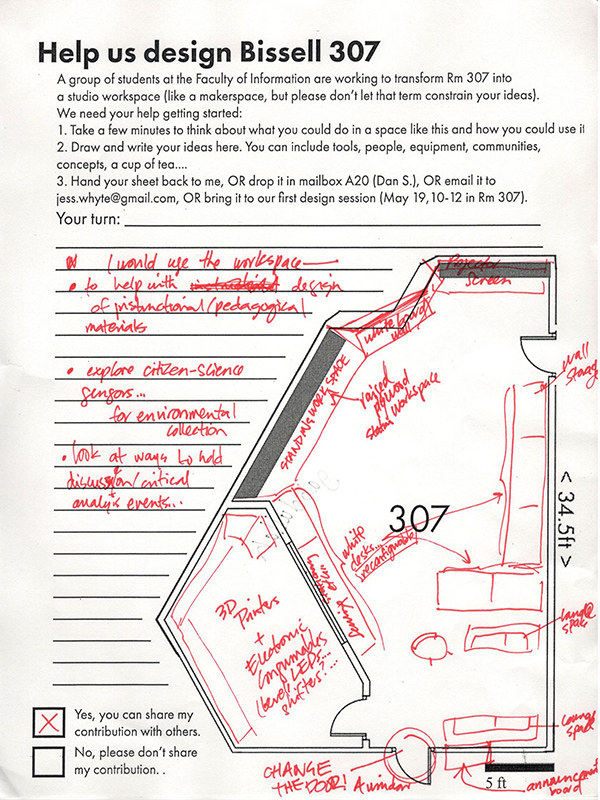 Help us design Bissell 307
A group of students at the Faculty of Information are working to transform Rm 307 into
a studio workspace (like a makerspace, but please don't let that term constrain your ideas).
We need your help getting started:
1. Take a few minutes to think about what you could do in a space like this and how you could use it
2. Draw and write your ideas here. You can include tools, people, equipment, communities,
concepts, a cup of tea....
3. Hand your sheet back to me, OR drop it in mailbox A20 (Dan S.), OR email it to
jess.whyte@gmail.com, OR bring it to our first design session (May 19,10-12 in Rm 307).
Your turn:
I would use the workspace—
• to help with design
of instructional/pedagogical
materials
• explore citizen-science
sensors...
for environmental
collection
• look at ways to hold
discussion/critical
analysis events...
Projector
Screen
white board
wall
STANDING WORK SPACE
raised
plywood
station workspace
wall
storage
307
< 34.5ft >
white
desks...
reconfigurable
3D Printers
+
Electronic
Consumables
LEDS...
shifters?...
lounge
space
lounge
space
CHANGE
THE DOOR!
A window
announcement
board
5 ft
Yes, you can share my
contribution with others.
No, please don't share
my contribution. .